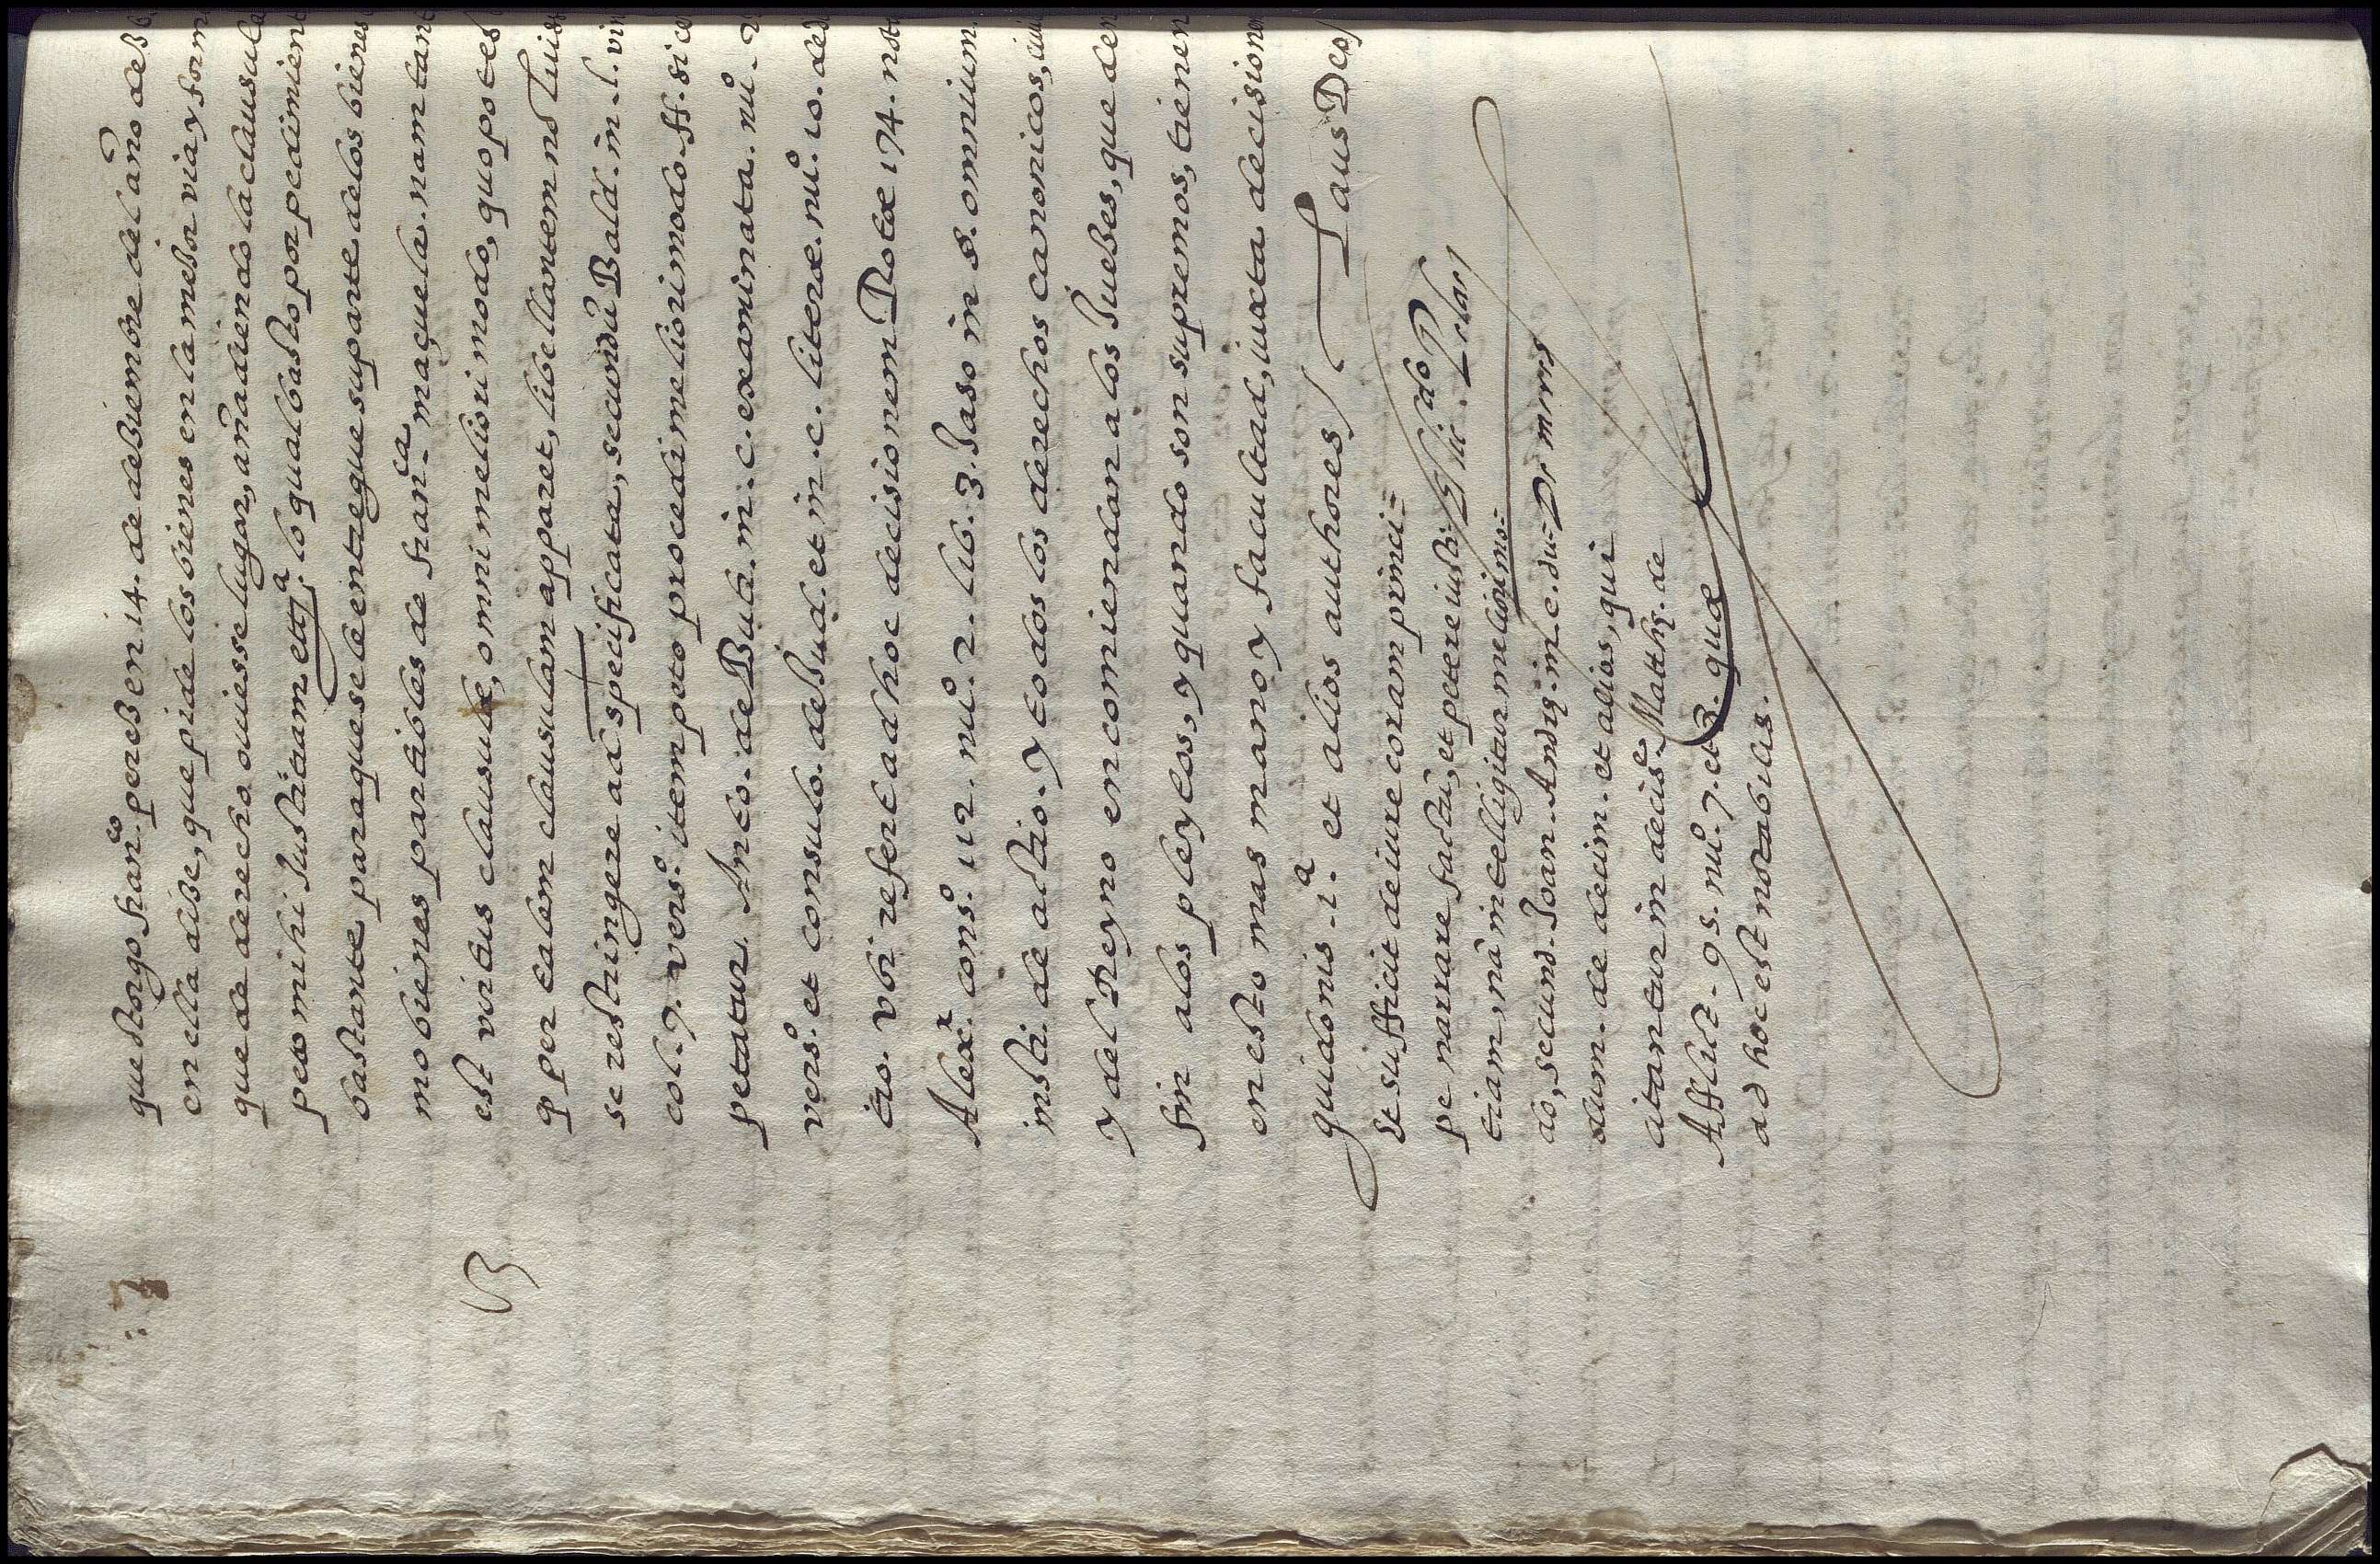 que otorgo fran.co perez en 14. de deziembre del año de
en ella dize, que pide los bienes en la mejor via y form
que de derecho ouiesse lugar, añadiendo la clausula
peto mihi justitiam ett.a lo qual basto por pedimient
bastante para que se le entregue su parte de los bienes
mo bienes partibles de fran.ca maçuela. nam tan
est virtus clausulæ, omni meliori modo, quo potest
q per talem clausulam apparet, libellantem no
se restringere ad specificata, secundũ Bald. in. l.
col. 7. vers.o item peto procedi meliori modo. ff. si ce
petatur. Anto. de But. in. c. examinata. nu.o
vers.o et consulo. de Jud. et in. c. literæ. nu.o 10. de
tio. vbi refert ad hoc decisionem Rotæ 174. no
Alexr. cons.o 112. nu.o 2. lib. 3. Jaso in §. omnium
insti. de actio. y todos los derechos canonicos,
y del Reyno encomiendan a los Juezes, que den
fin a los pleytos, y quando son supremos, tienen
en esto mas mano y facultad, iuxta decisionem
guidonis. 1.a et alios authores / Laus Deo /
Et sufficit de iure coram princi=
pe narrare factũ, et petere iusti-
tiam, nã intelligitur meliori mo=
do, secund. Joan. Andrę. in. c. du=
dum. de decim. et alios, qui
citantur in decis.e Matthę. de
Afflict. 95. nu.o 7. et 3. quæ
ad hoc est notabilis.
El lic.do